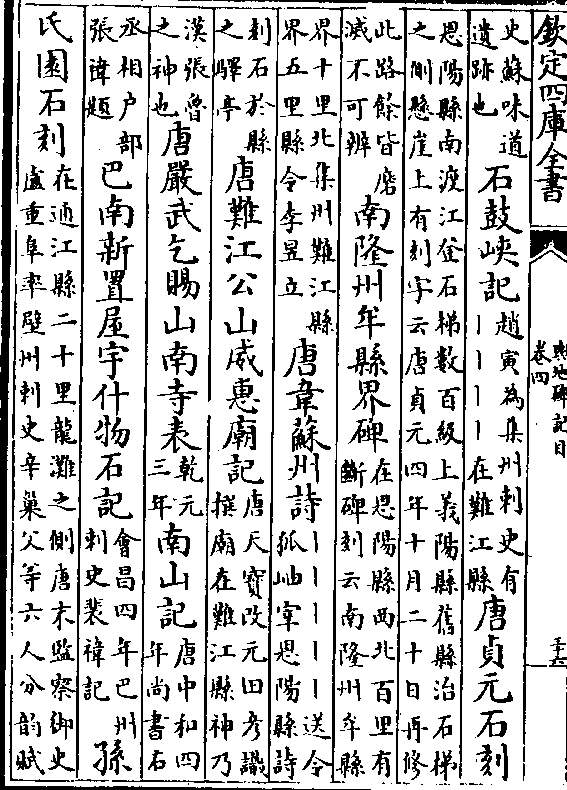 欽定四庫全書
輿地碑記目
卷四
三十六
史蘇味道遺跡也石鼓峽記趙寅為集州刺史有丨丨丨丨在難江縣唐貞元石刻
恩陽縣南渡江登石梯數百級上義陽縣舊縣治石梯之側懸崖上有刻字云唐貞元四年十月二十日再修
此路餘皆磨滅不可辨南隆州牟縣界碑在恩陽縣西北百里有斷碑刻云南隆州牟縣
界十里北集州難江縣界五里縣令李昱立唐韋蘇州詩丨丨丨丨丨送令狐岫宰恩陽縣詩
刻石於縣之驛亭唐難江公山威惠廟記唐天寶改元田彦識撰廟在難江縣神乃
漢張魯之神也唐嚴武乞賜山南寺表乾元三年南山記唐中和四年尚書石
丞相户部張禕題巴南新置屋宇什物石記會昌四年巴州刺史裴禕記孫
氏園石刻在通江縣二十里龍灘之側唐末監察御史盧重阜率壁州刺史辛巢父等六人分韵賦